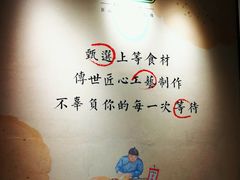 甄選上等食材
傳世匠心工藝制作
不辜負你的每一次等待